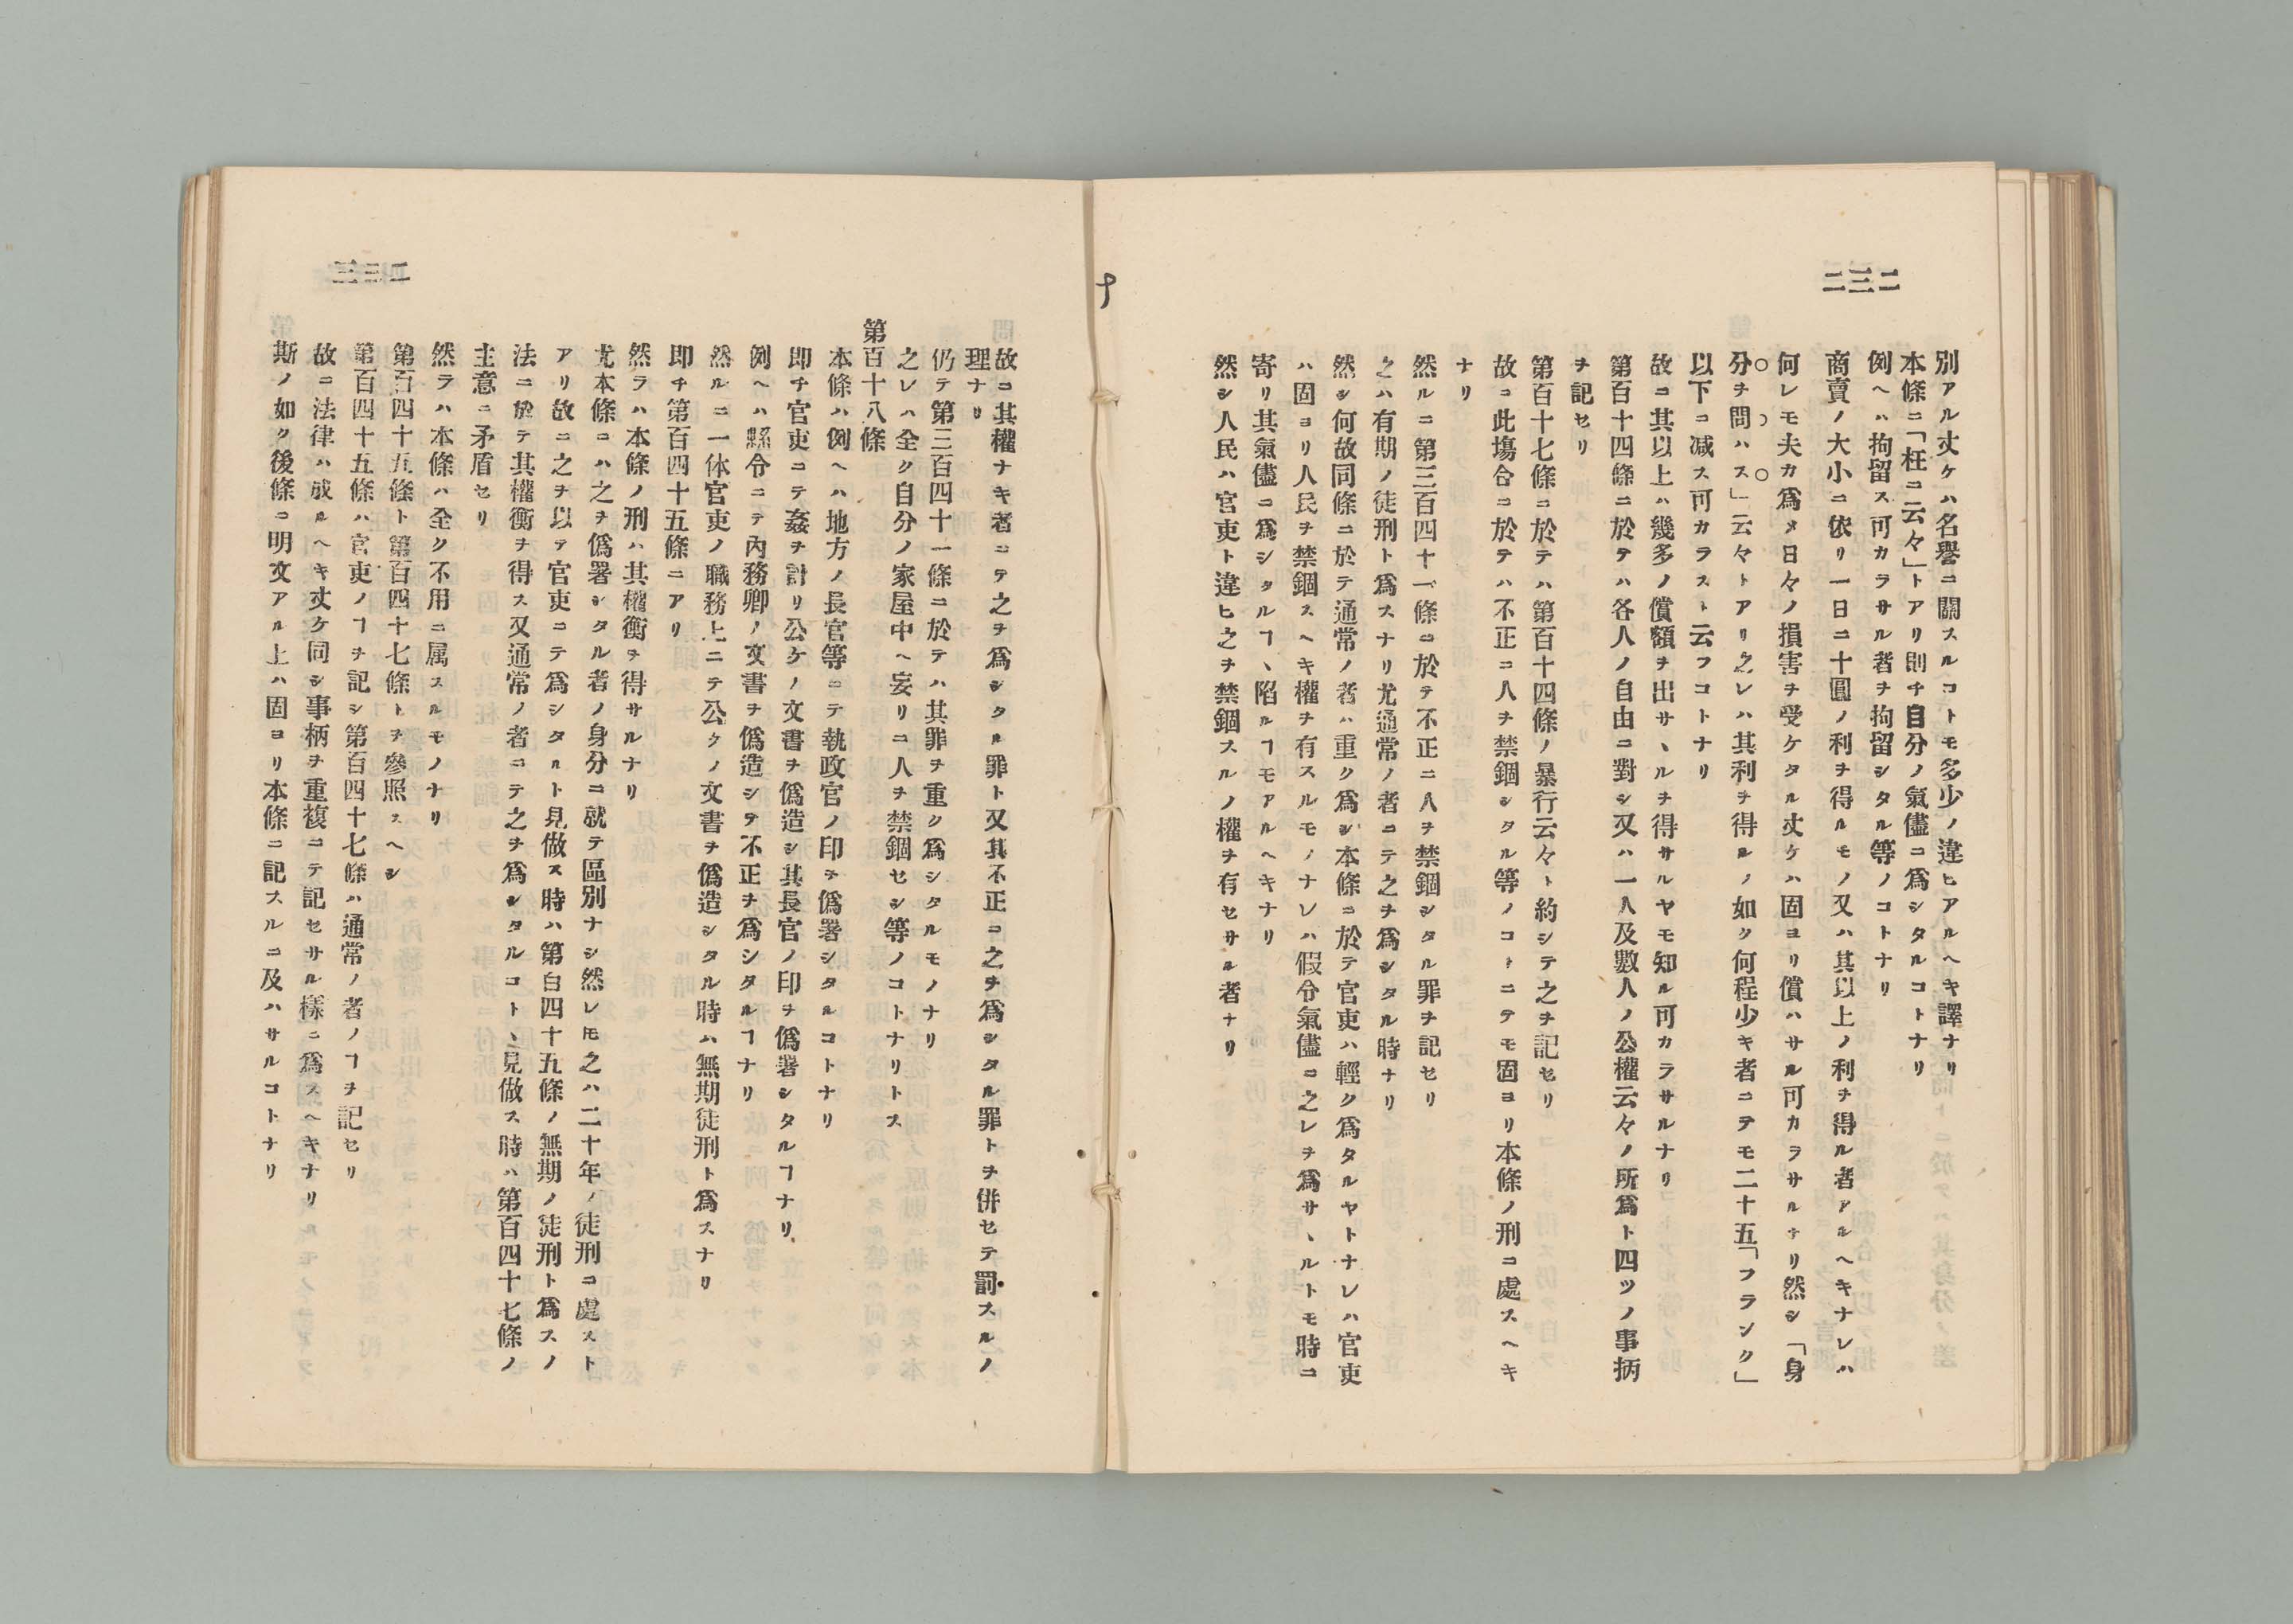 二三二
別アル丈ケハ名譽ニ關スルコトモ多少ノ違ヒアルヘキ譯ナリ
本條ニ「枉ニ云々」トアリ則チ自分ノ氣儘ニ爲シタルコトナリ
例ヘハ拘留ス可カラサル者ヲ拘留シタル等ノコトナリ
商賣ノ大小ニ依リ一日ニ十圓ノ利ヲ得ルモノ又ハ其以上ノ利ヲ得ル者アルヘキナレハ
何レモ夫カ爲メ日々ノ損害ヲ受ケタル丈ケハ固ヨリ償ハサル可カラサルナリ然シ「身
分ヲ問ハス」云々トアリ之レハ其利ヲ得ルノ如ク何程少キ者ニテモ二十五「フランク」
以下ニ减ス可カラスト云フコトナリ
故ニ其以上ハ幾多ノ償額ヲ出サヽルヲ得サルヤモ知ル可カラサルナリ
第百十四條ニ於テハ各人ノ自由ニ對シ又ハ一人及數人ノ公權云々ノ所爲ト四ツノ事柄
ヲ記セリ
第百十七條ニ於テハ第百十四條ノ暴行云々ト約シテ之ヲ記セリ
故ニ此塲合ニ於テハ不正ニ人ヲ禁錮シタル等ノコトニテモ固ヨリ本條ノ刑ニ處スヘキ
ナリ
然ルニ第三百四十一條ニ於テ不正ニ人ヲ禁錮シタル罪ヲ記セリ
之ハ有期ノ徒刑ト爲スナリ尤通常ノ者ニテ之ヲ爲シタル時ナリ
然シ何故同條ニ於テ通常ノ者ハ重ク爲シ本條ニ於テ官吏ハ輕ク爲タルヤトナレハ官吏
ハ固ヨリ人民ヲ禁錮スヘキ權ヲ有スルモノナレハ假令氣儘ニ之レヲ爲サヽルトモ時ニ
寄リ其氣儘ニ爲シタルヿヽ陷ルヿモアルヘキナリ
然シ人民ハ官吏ト違ヒ之ヲ禁錮スルノ權ヲ有セサル者ナリ
二三三
故ニ其權ナキ者ニテ之ヲ爲シタル罪ト又其不正ニ之ヲ爲シタル罪トヲ併セテ罰スルノ
理ナリ
仍テ第三百四十一條ニ於テハ其罪ヲ重ク爲シタルモノナリ
之レハ全ク自分ノ家屋中ヘ妄リニ人ヲ禁錮セシ等ノコトナリトス
第百十八條
本條ハ例ヘハ地方ノ長官等ニテ執政官ノ印ヲ僞署シタルコトナリ
即チ官吏ニテ姦ヲ計リ公ケノ文書ヲ僞造シ其長官ノ印ヲ僞署シタルヿナリ
例ヘハ縣令ニテ内務卿ノ文書ヲ僞造シテ不正ヲ爲シタルヿナリ
然ルニ一体官吏ノ職務上ニテ公ケノ文書ヲ僞造シタル時ハ無期徒刑ト爲スナリ
即チ第百四十五條ニアリ
然ラハ本條ノ刑ハ其權衡ヲ得サルナリ
尤本條ニハ之ヲ僞署シタル者ノ身分ニ就テ區別ナシ然レㇳモ之ハ二十年ノ徒刑ニ處スト
アリ故ニ之ヲ以テ官吏ニテ爲シタルト見做ス時ハ第百四十五條ノ無期ノ徒刑ト爲スノ
法ニ於テ其權衡ヲ得ス又通常ノ者ニテ之ヲ爲シタルコトヽ見做ス時ハ第百四十七條ノ
主意ニ矛盾セリ
然ラハ本條ハ全ク不用ニ属スルモノナリ
第百四十五條ト第百四十七條トヲ參照スヘシ
第百四十五條ハ官吏ノヿヲ記シ第百四十七條ハ通常ノ者ノヿヲ記セリ
故ニ法律ハ成ルヘキ丈ケ同シ事柄ヲ重複ニテ記セサル樣ニ爲スヘキナリ
斯ノ如ク後條ニ明文アル上ハ固ヨリ本條ニ記スルニ及ハサルコトナリ